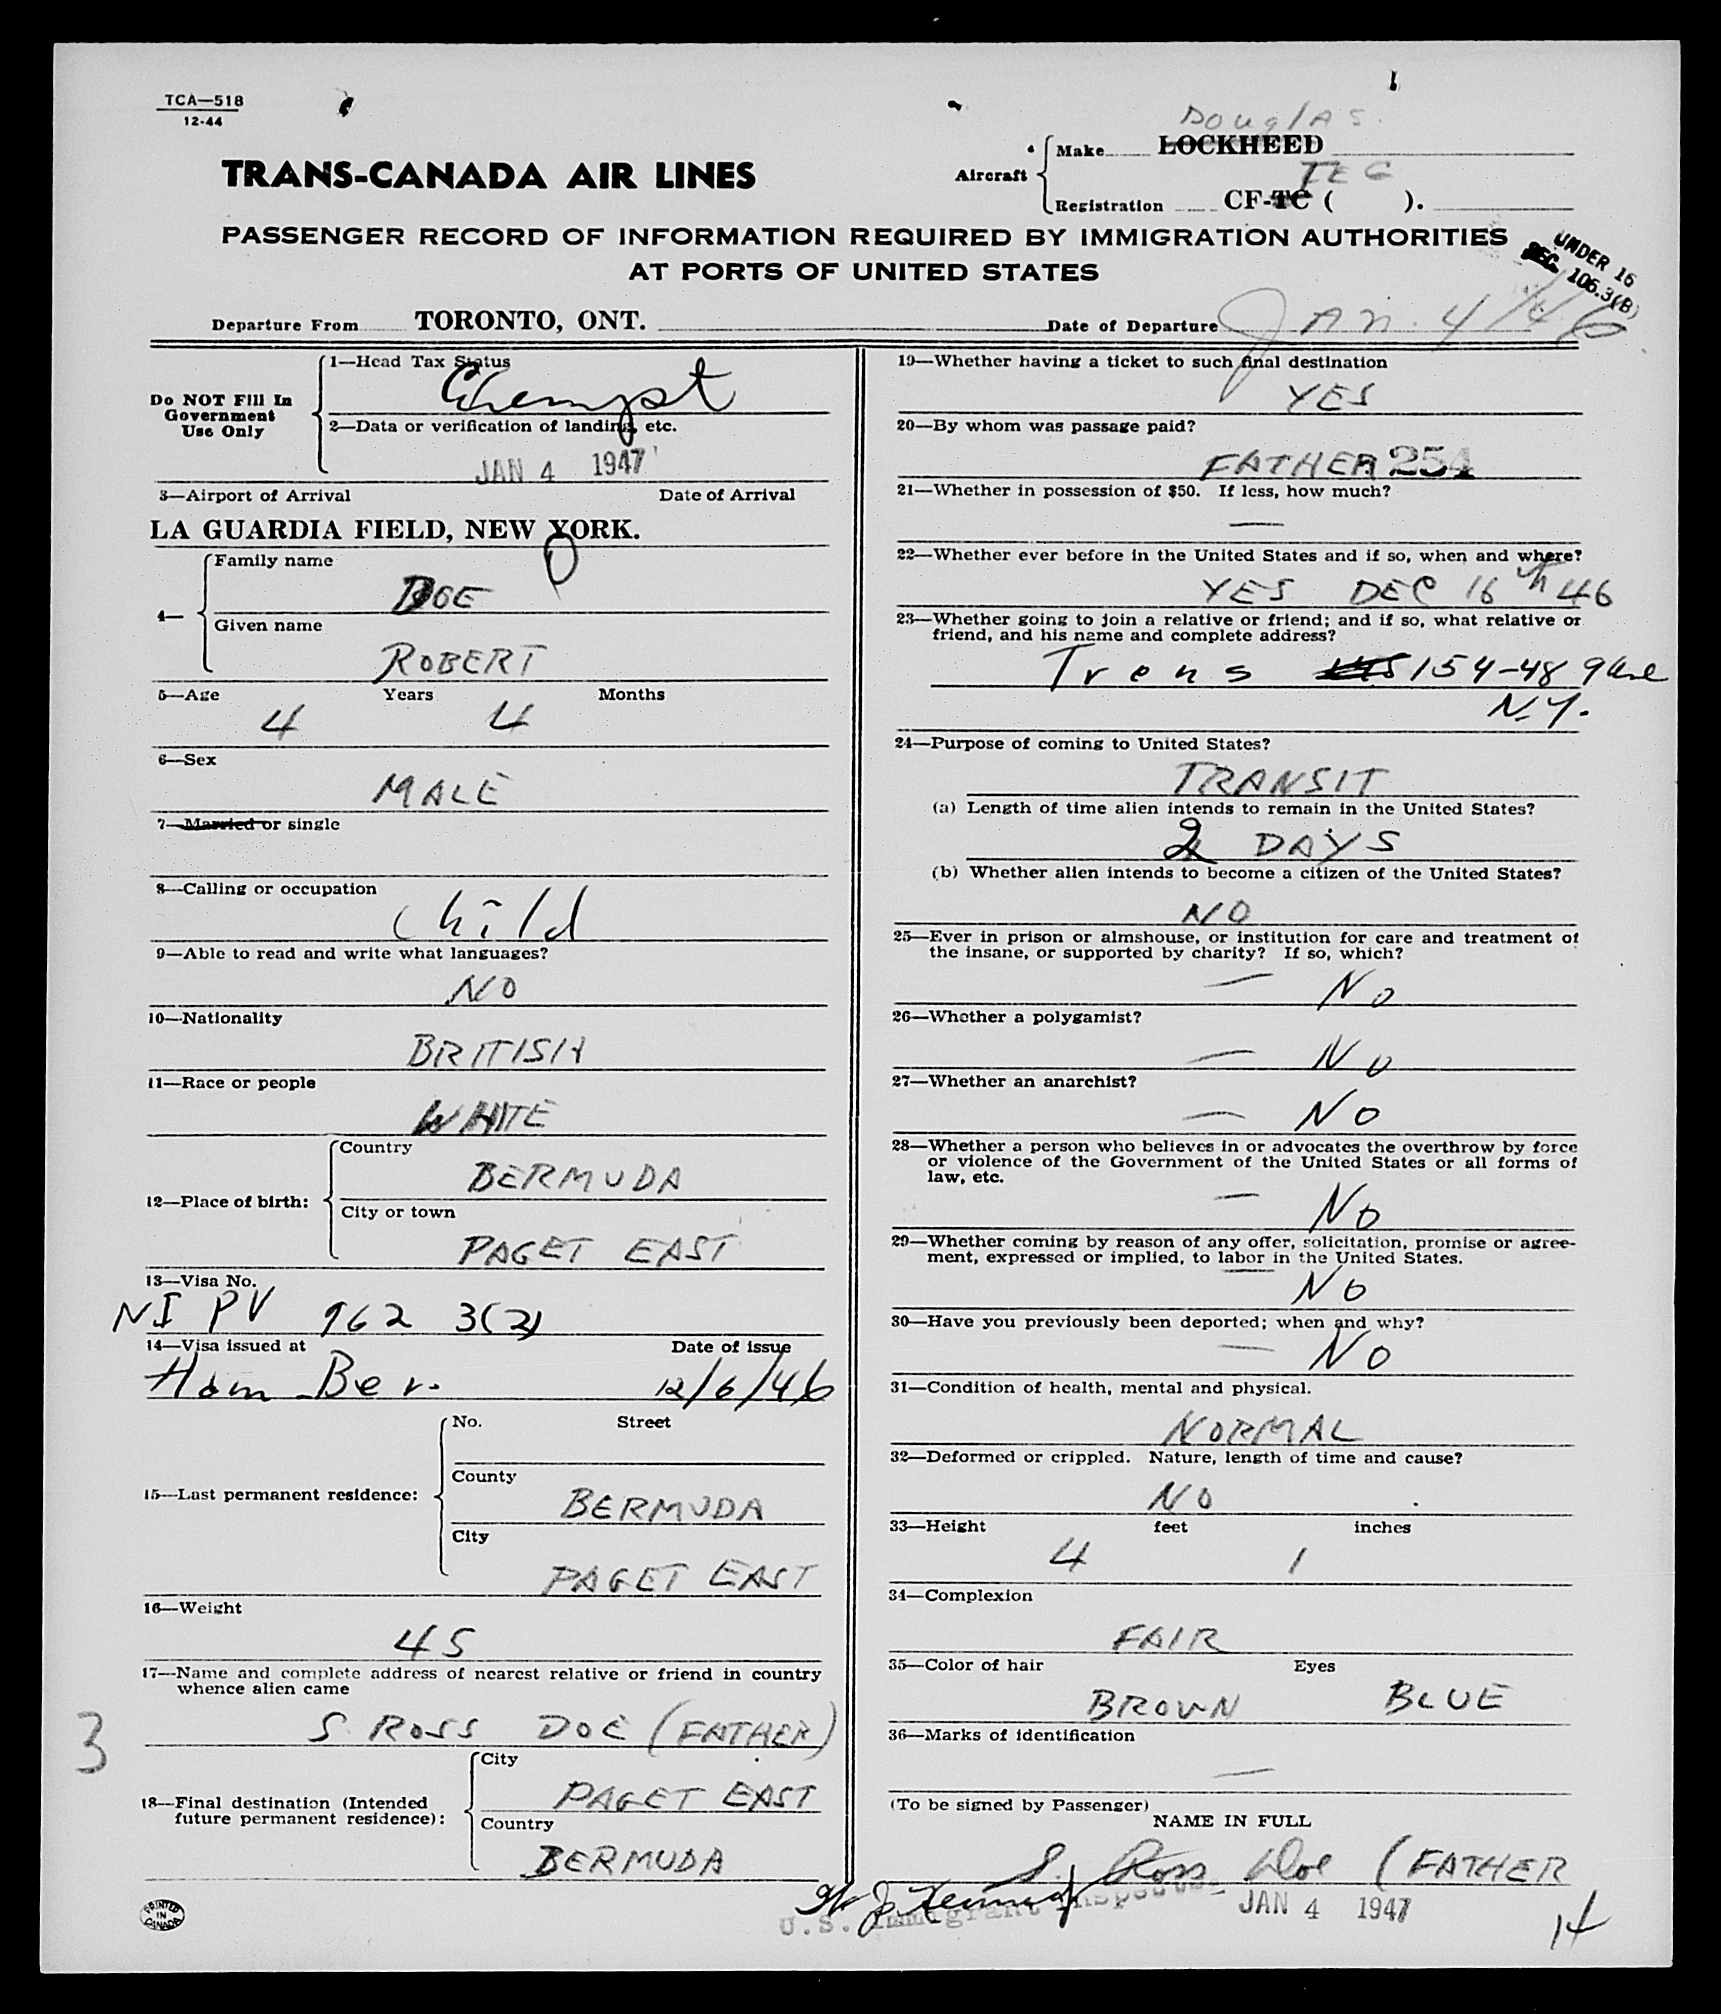 TCA—518
12-44
TRANS-CANADA AIR LINES
Aircraft
Make
Douglas.
LOCKHEED
TEG
Registration CF-TC ( ).
PASSENGER RECORD OF INFORMATION REQUIRED BY IMMIGRATION AUTHORITIES
AT PORTS OF UNITED STATES
UNDER 16
SEC. 106.3(B)
Departure From TORONTO, ONT.
Date of Departure JAN. 4/46
Do NOT Fill In
Government
Use Only
1—Head Tax Status
Exempt
2—Data or verification of landing, etc.
JAN 4 1947
3—Airport of Arrival Date of Arrival
LA GUARDIA FIELD, NEW YORK.
4—
Family name
DOE
Given name
ROBERT
5—Age Years Months
4 4
6—Sex
MALE
7—Married or single
8—Calling or occupation
Child
9—Able to read and write what languages?
NO
10—Nationality
BRITISH
11—Race or people
WHITE
12—Place of birth:
Country
BERMUDA
City or town
PAGET EAST
13—Visa No.
NI PV 962 3(2)
14—Visa issued at Date of issue
Ham Ber. 12/6/46
15—Last permanent residence:
No. Street
County
BERMUDA
City
PAGET EAST
16—Weight
45
17—Name and complete address of nearest relative or friend in country
whence alien came
S. ROSS DOE (FATHER)
3
18—Final destination (Intended
future permanent residence):
City
PAGET EAST
Country
BERMUDA
PRINTED
IN
CANADA
19—Whether having a ticket to such final destination
YES
20—By whom was passage paid?
FATHER 254
21—Whether in possession of $50. If less, how much?
—
22—Whether ever before in the United States and if so, when and where?
YES DEC 16th 46
23—Whether going to join a relative or friend; and if so, what relative or
friend, and his name and complete address?
Trens 154-48 9 Ave
N.Y.
24—Purpose of coming to United States?
TRANSIT
(a) Length of time alien intends to remain in the United States?
2 DAYS
(b) Whether alien intends to become a citizen of the United States?
NO
25—Ever in prison or almshouse, or institution for care and treatment of
the insane, or supported by charity? If so, which?
— No
26—Whether a polygamist?
— No
27—Whether an anarchist?
— No
28—Whether a person who believes in or advocates the overthrow by force
or violence of the Government of the United States or all forms of
law, etc.
— No
29—Whether coming by reason of any offer, solicitation, promise or agree-
ment, expressed or implied, to labor in the United States.
— No
30—Have you previously been deported; when and why?
— No
31—Condition of health, mental and physical.
NORMAL
32—Deformed or crippled. Nature, length of time and cause?
NO
33—Height feet inches
4 1
34—Complexion
FAIR
35—Color of hair Eyes
BROWN BLUE
36—Marks of identification
—
(To be signed by Passenger)
NAME IN FULL
S. Ross Doe (FATHER
U.S. Immigrant Inspector
JAN 4 1947
14